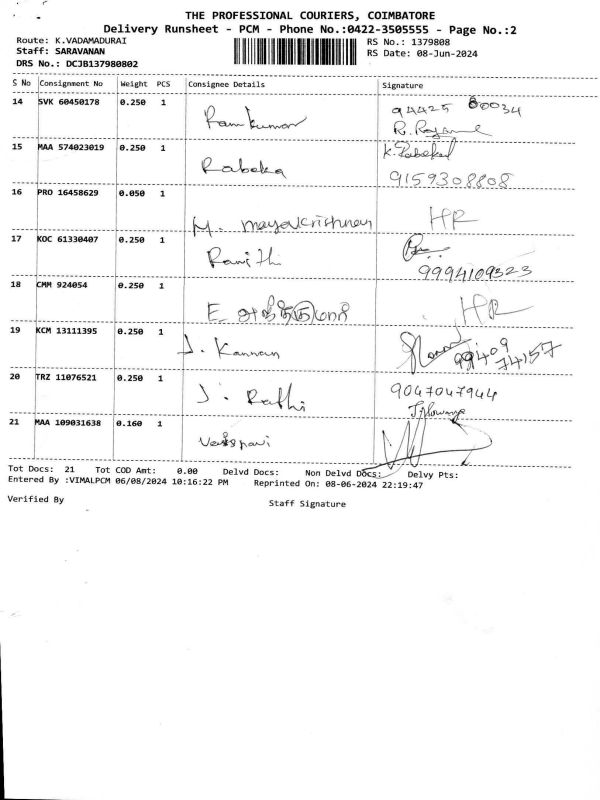 THE PROFESSIONAL COURIERS, COIMBATORE
Delivery Runsheet - PCM - Phone No.:0422-3505555 - Page No.:2
Route: K.VADAMADURAI RS No.: 1379808
Staff: SARAVANAN RS Date: 08-Jun-2024
DRS No.: DCJB137980802
S No Consignment No Weight PCS Consignee Details Signature
14 SVK 60450178 0.250 1 Ramkumar 94425 80034
15 MAA 574023019 0.250 1 Rabeka K. Rabeka
9159308808
16 PRO 16458629 0.050 1 M. mayakrishnan HR
17 KOC 61330407 0.250 1 Ranithi
9994109323
18 CMM 924054 0.250 1 E HR
19 KCM 13111395 0.250 1 J. Kannan 99409
74157
20 TRZ 11076521 0.250 1 J. Rathi 9047047944
21 MAA 109031638 0.160 1
Tot Docs: 21 Tot COD Amt: 0.00 Delvd Docs: Non Delvd Docs: Delvy Pts:
Entered By :VIMALPCM 06/08/2024 10:16:22 PM Reprinted On: 08-06-2024 22:19:47
Verified By Staff Signature